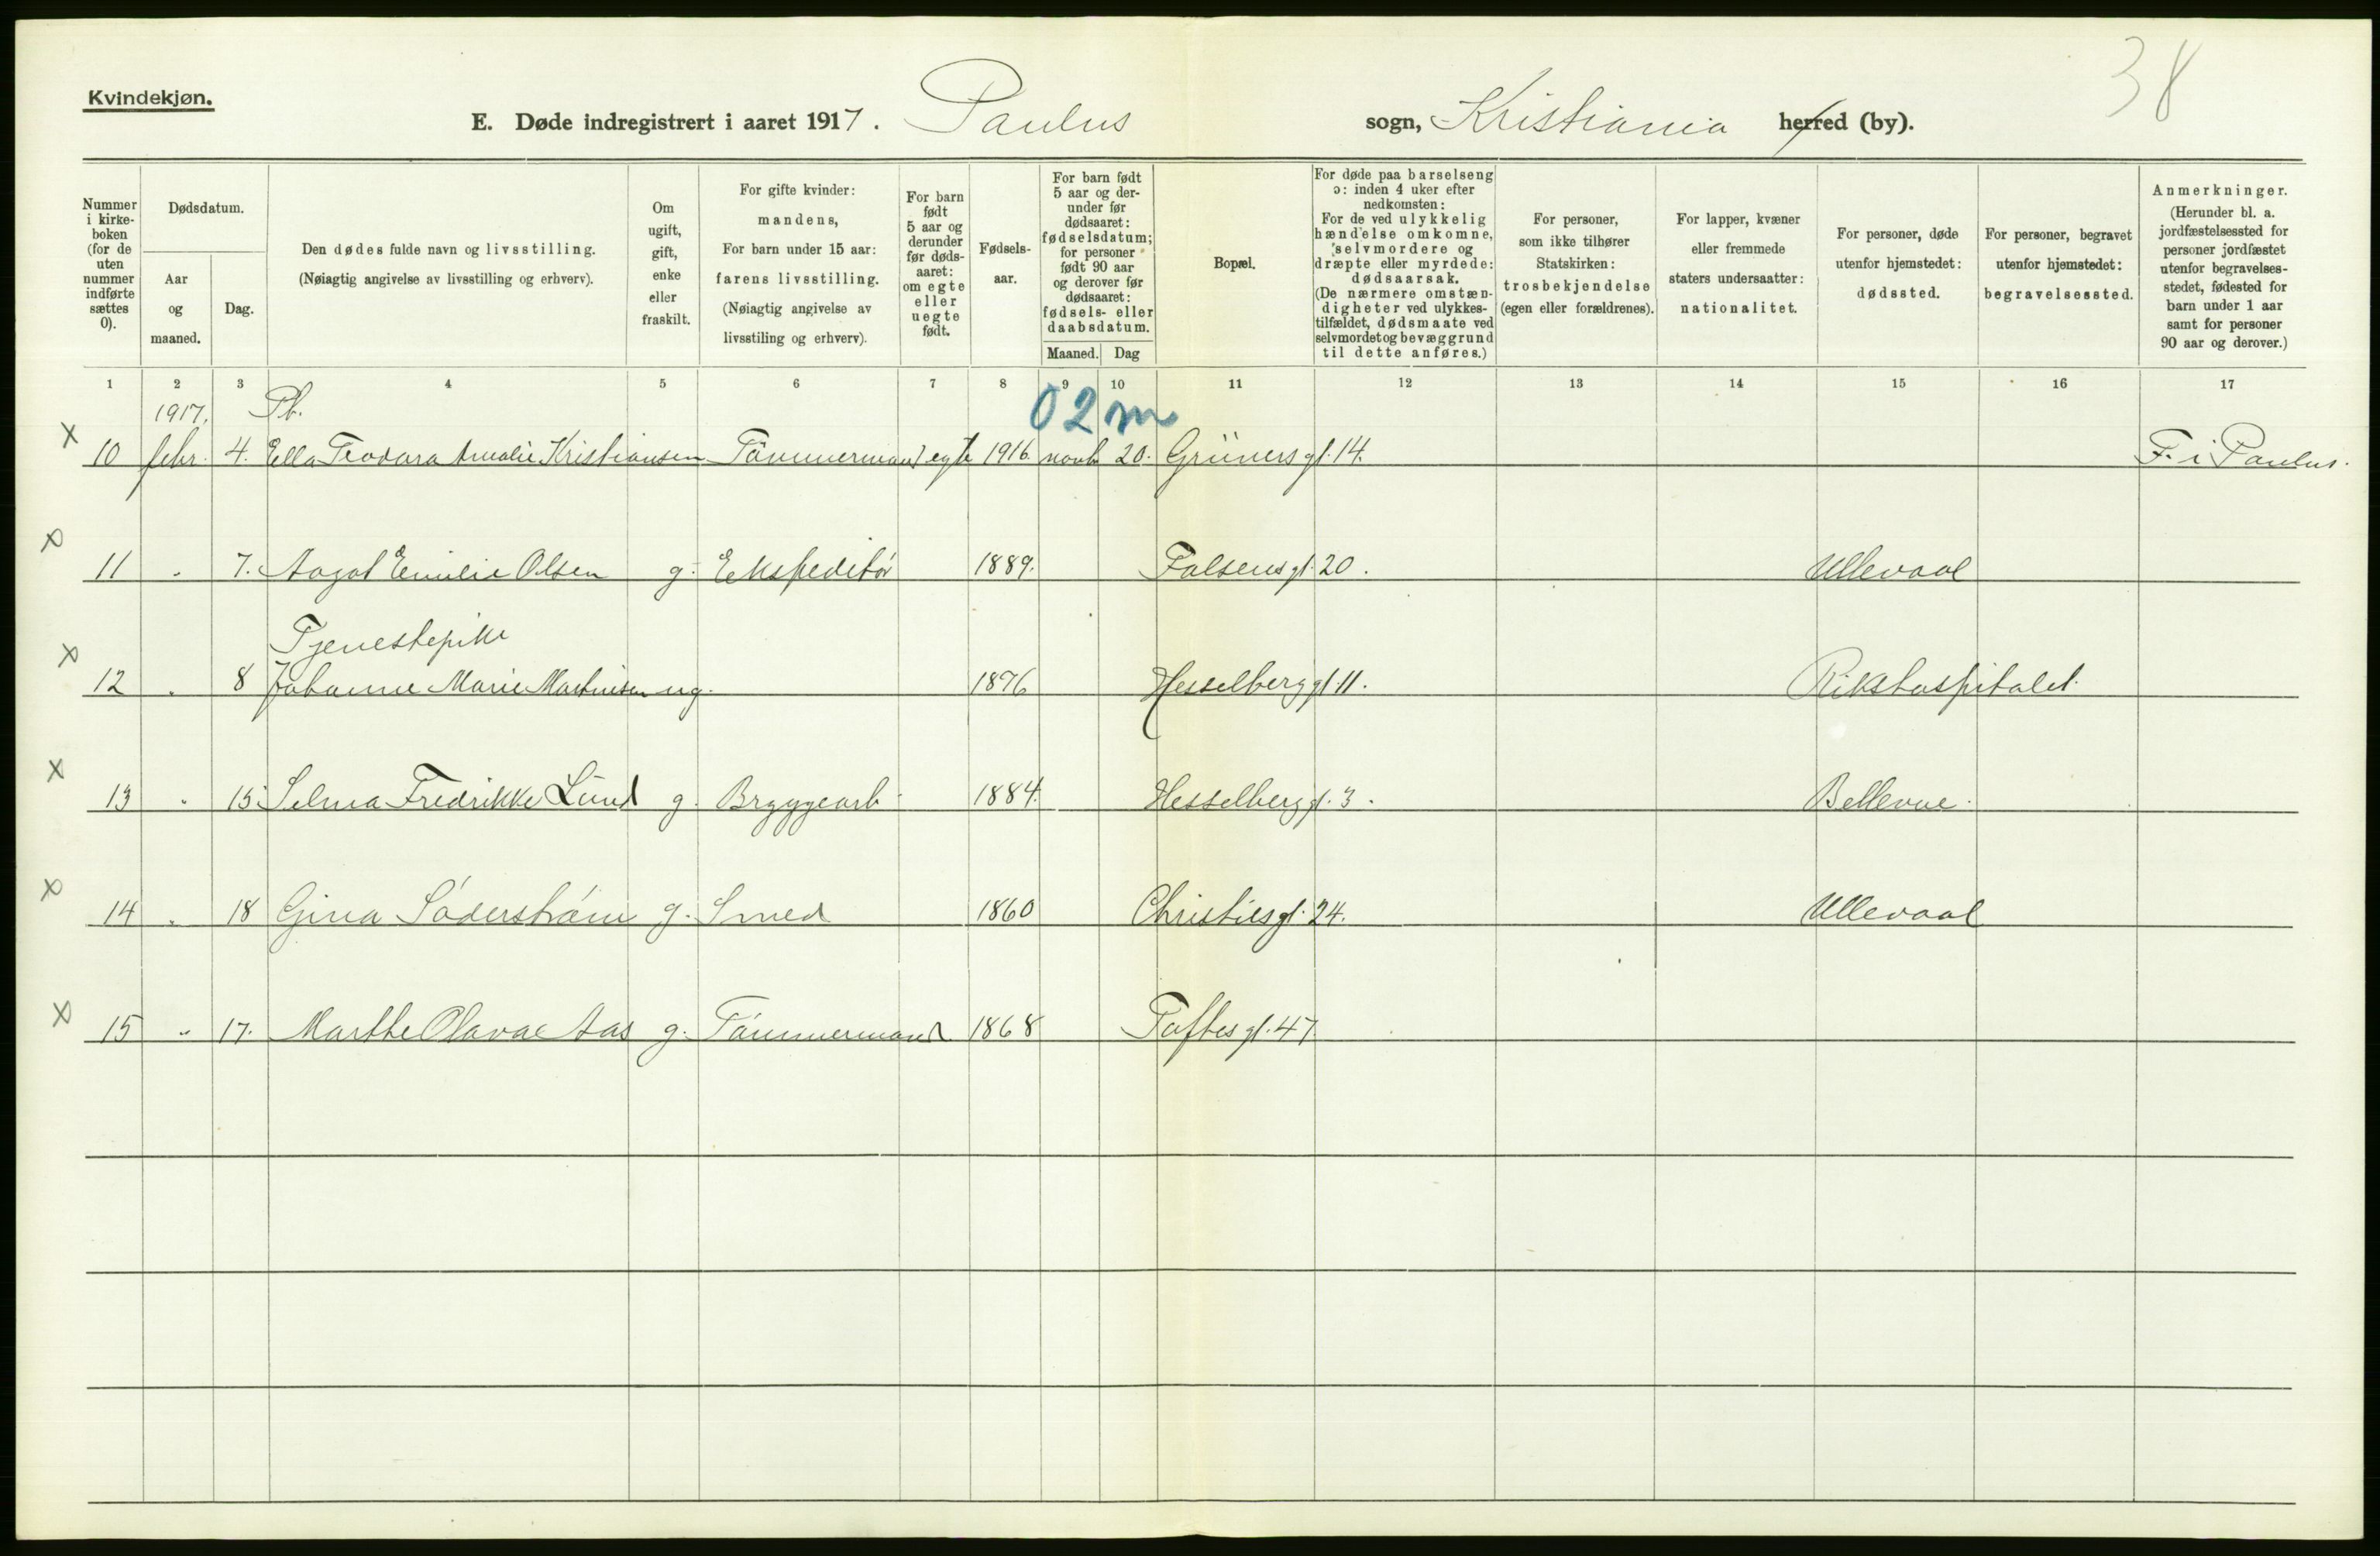 38
Kvindekjøn.
E. Døde indregistrert i aaret 1917. Paulus sogn, Kristiania herred (by).
Nummer i kirke-boken (for de uten nummer indførte sættes 0).
Dødsdatum.
Aar og maaned.
Dag.
Den dødes fulde navn og livsstilling.
(Nøiagtig angivelse av livsstilling og erhverv).
Om ugift, gift, enke eller fraskilt.
For gifte kvinder: mandens,
For barn under 15 aar: farens livsstilling.
(Nøiagtig angivelse av livsstiling og erhverv).
For barn født 5 aar og derunder før døds-aaret: om egte eller uegte født.
Fødsels-aar.
For barn født 5 aar og der-under før dødsaaret: fødselsdatum; for personer født 90 aar og derover før dødsaaret: fødsels- eller daabsdatum.
Maaned. Dag
Bopæl.
For døde paa barselseng ɔ: inden 4 uker efter nedkomsten:
For de ved ulykkelig hændelse omkomne, selvmordere og dræpte eller myrdede: dødsaarsak.
(De nærmere omstæn-digheter ved ulykkes-tilfældet, dødsmaate ved selvmordet og bevæggrund til dette anføres.)
For personer, som ikke tilhører Statskirken: trosbekjendelse (egen eller forældrenes).
For lapper, kvæner eller fremmede staters undersaatter: nationalitet.
For personer, døde utenfor hjemstedet: dødssted.
For personer, begravet utenfor hjemstedet: begravelsessted.
Anmerkninger.
(Herunder bl. a. jordfæstelsessted for personer jordfæstet utenfor begravelses-stedet, fødested for barn under 1 aar samt for personer 90 aar og derover.)
1 2 3 4 5 6 7 8 9 10 11 12 13 14 15 16 17
1917. Pb. 02 m
x 10 febr. 4. Ella Teodora Amalie Kristiansen Tömmermand egte 1916 novb 20. Grüners gt. 14. F. i Paulus.
x 11 " 7. Aagot Emilie Olsen g. Ekspeditør 1889. Falsens gt. 20. Ullevaal
Tjenestepike
x 12 " 8 Johanne Marie Martinsen ug. 1876 Hesselberg gt. 11. Rikshospitalet.
x 13 " 15 Selma Fredrikke Lund g. Bryggearb. 1884. Hesselberg gt. 3. Bellevue.
x 14 " 18 Gina Söderström g. Smed 1860 Christies gt. 24. Ullevaal
x 15 " 17. Marthe Olavae Aas g. Tömmermand 1868 Toftes gt. 47